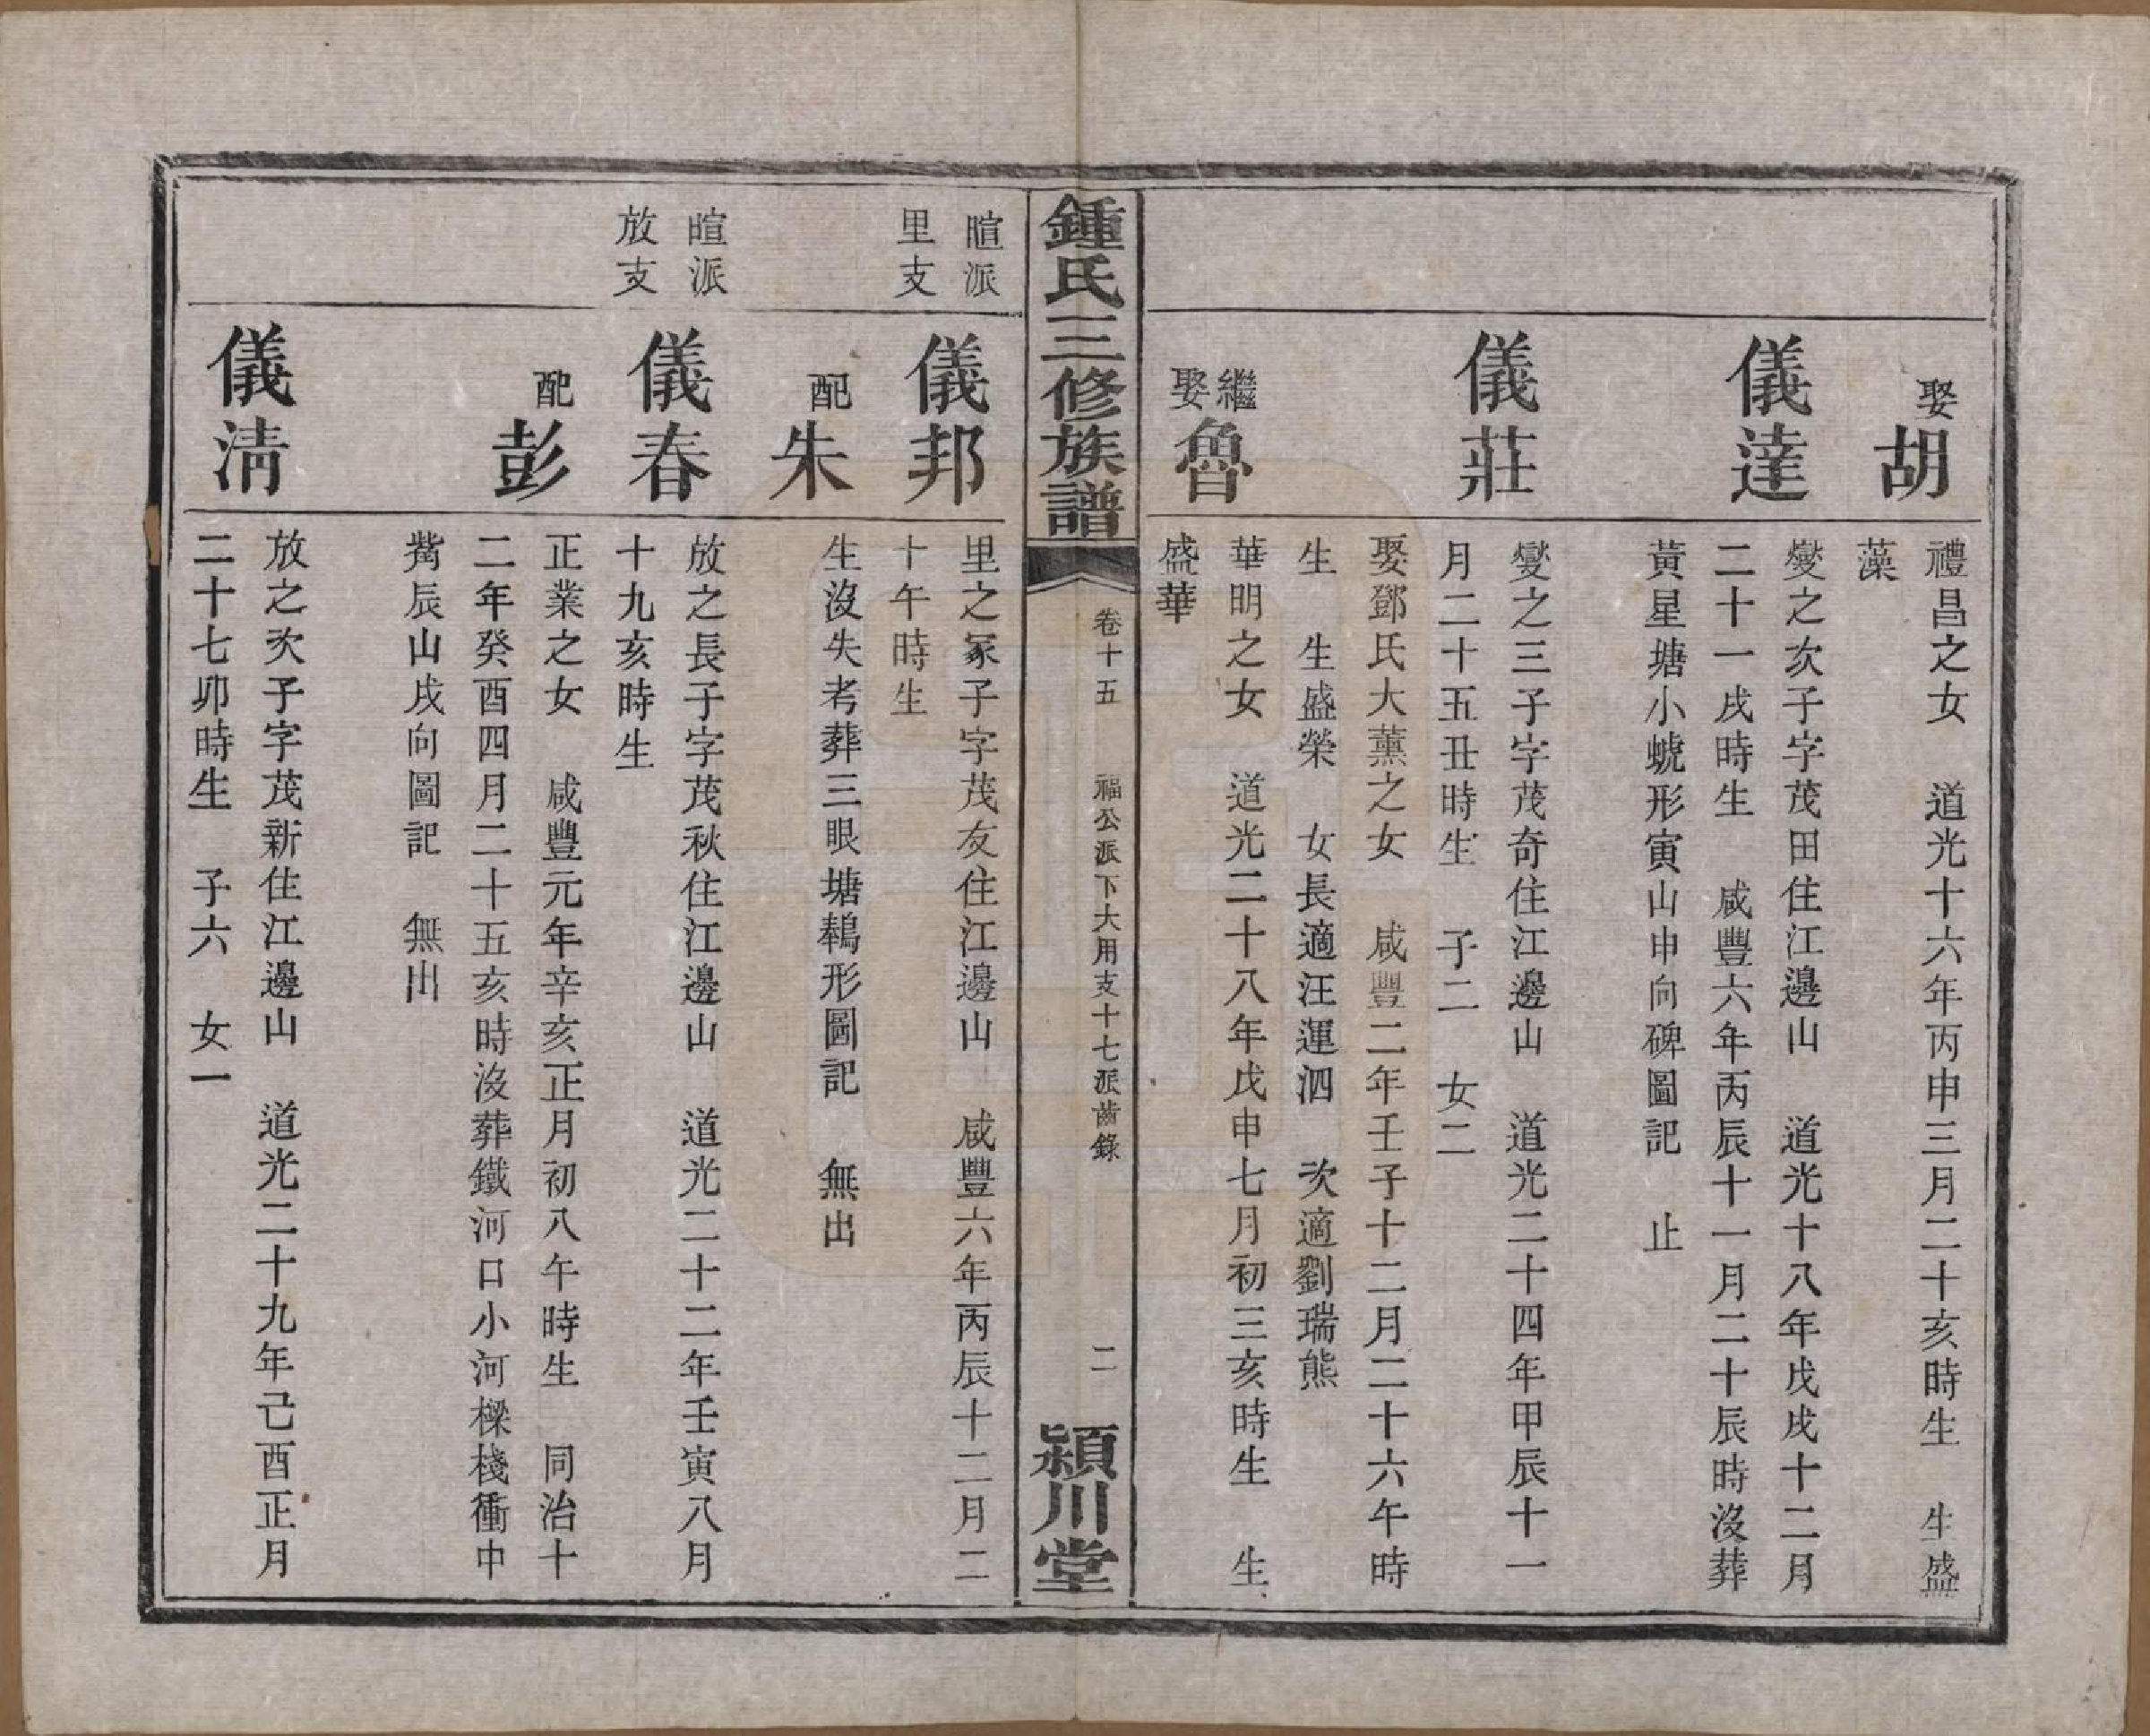 娶胡
禮昌之女　道光十六年丙申三月二十亥時生　生盛
藻
儀達
燮之次子字茂田住江邊山　道光十八年戊戌十二月
二十一戌時生　咸豐六年丙辰十一月二十辰時沒葬
黃星塘小螃形寅山申向碑圖記　止
儀莊
燮之三子字茂奇住江邊山　道光二十四年甲辰十一
月二十五丑時生　子二　女二
娶鄧氏大薰之女　咸豐二年壬子十二月二十六午時
生　生盛榮　女長適汪運泗　次適劉瑞熊
繼娶魯
華明之女　道光二十八年戊申七月初三亥時生　生
盛華
鍾氏三修族譜
卷十五　福公派下大用支十七派齒錄
二
潁川堂
暄派
里支
儀邦
里之冢子字茂友住江邊山　咸豐六年丙辰十二月二
十午時生
配朱
生沒失考葬三眼塘鵝形圖記　無出
暄派
放支
儀春
放之長子字茂秋住江邊山　道光二十二年壬寅八月
十九亥時生
配彭
正業之女　咸豐元年辛亥正月初八午時生　同治十
二年癸酉四月二十五亥時沒葬鐵河口小河樑棧衝中
嘴辰山戌向圖記　無出
儀清
放之次子字茂新住江邊山　道光二十九年己酉正月
二十七卯時生　子六　女一